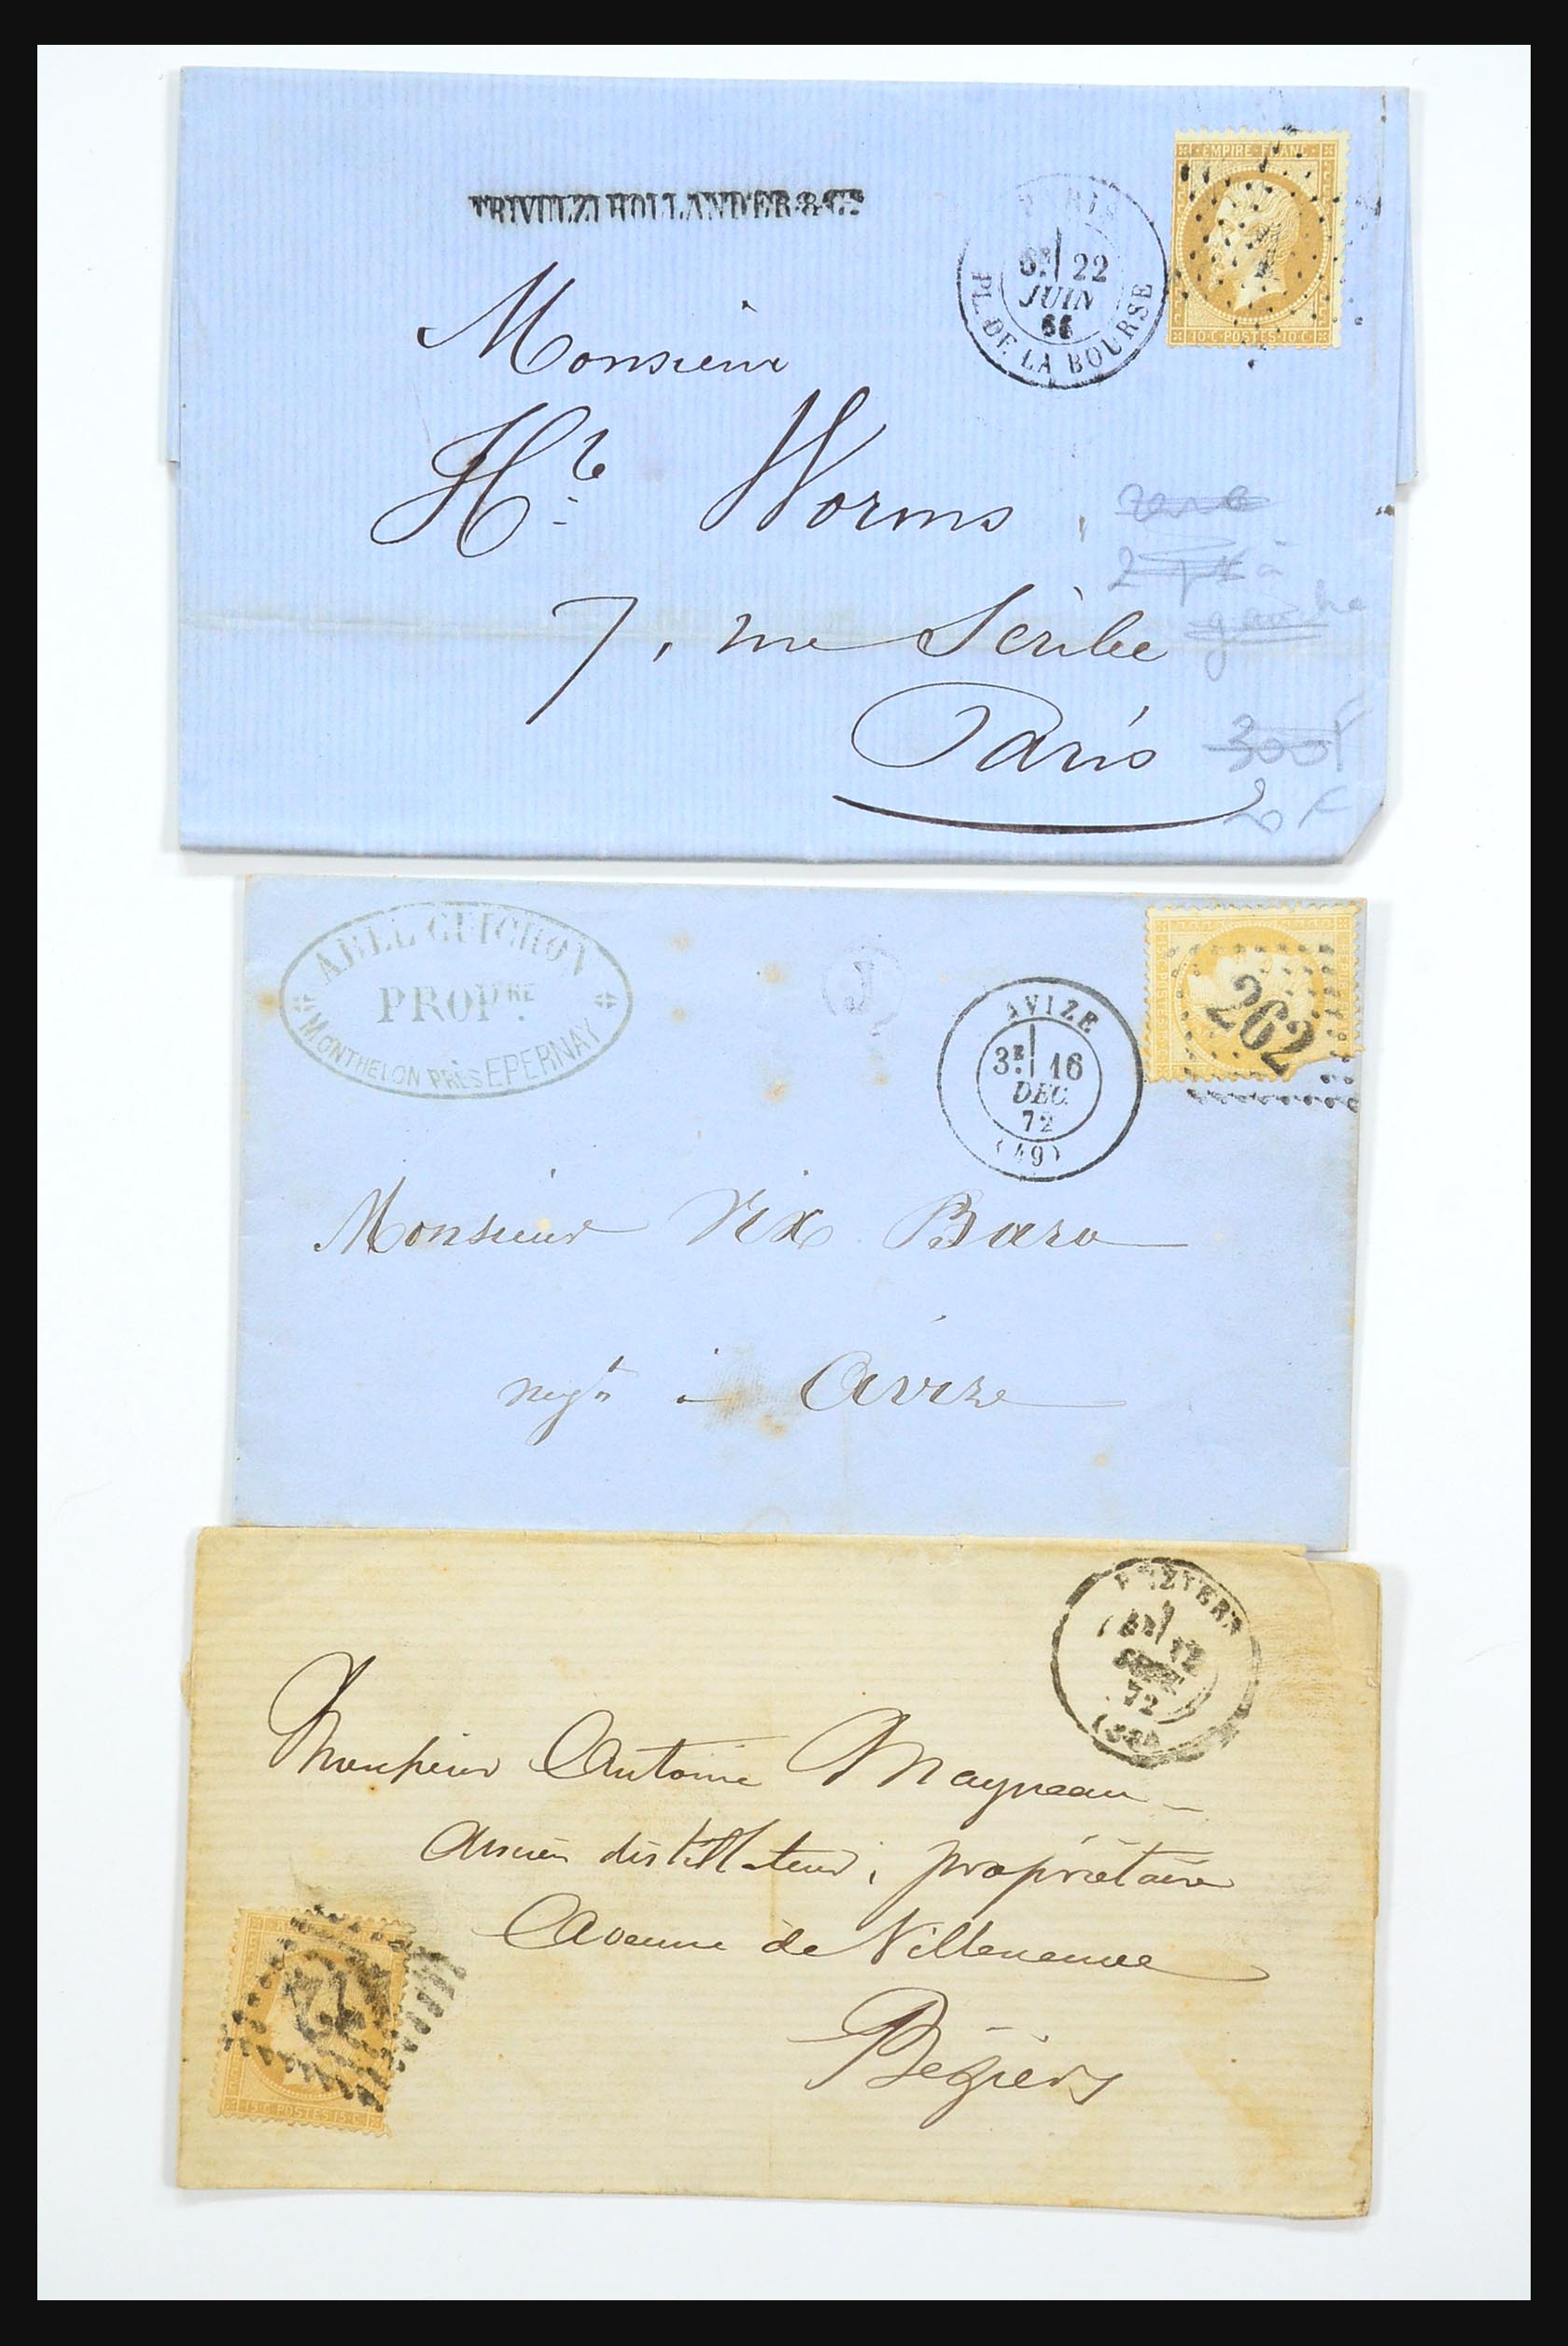 TRIVULZI HOLLANDER & Cie
EMPIRE FRANC
10 C POSTES 10 C
PARIS
6E 22
JUIN
66
PL. DE LA BOURSE
Monsieur
Hte Worms
7, rue Scribe
Paris
rare
2
à
gauche
300F
20 F
ABEL GUICHON
PROPRE
MONTHELON PRÈS EPERNAY
J
AVIZE
3E 16
DEC.
72
(49)
262
Monsieur Vix Bara
negt à Avize
BEZIERS
12
72
Monsieur Antoine Mayneau
Ancien distillateur, propriétaire
Avenue de Villeneuve
Béziers
15 C POSTES 15 C